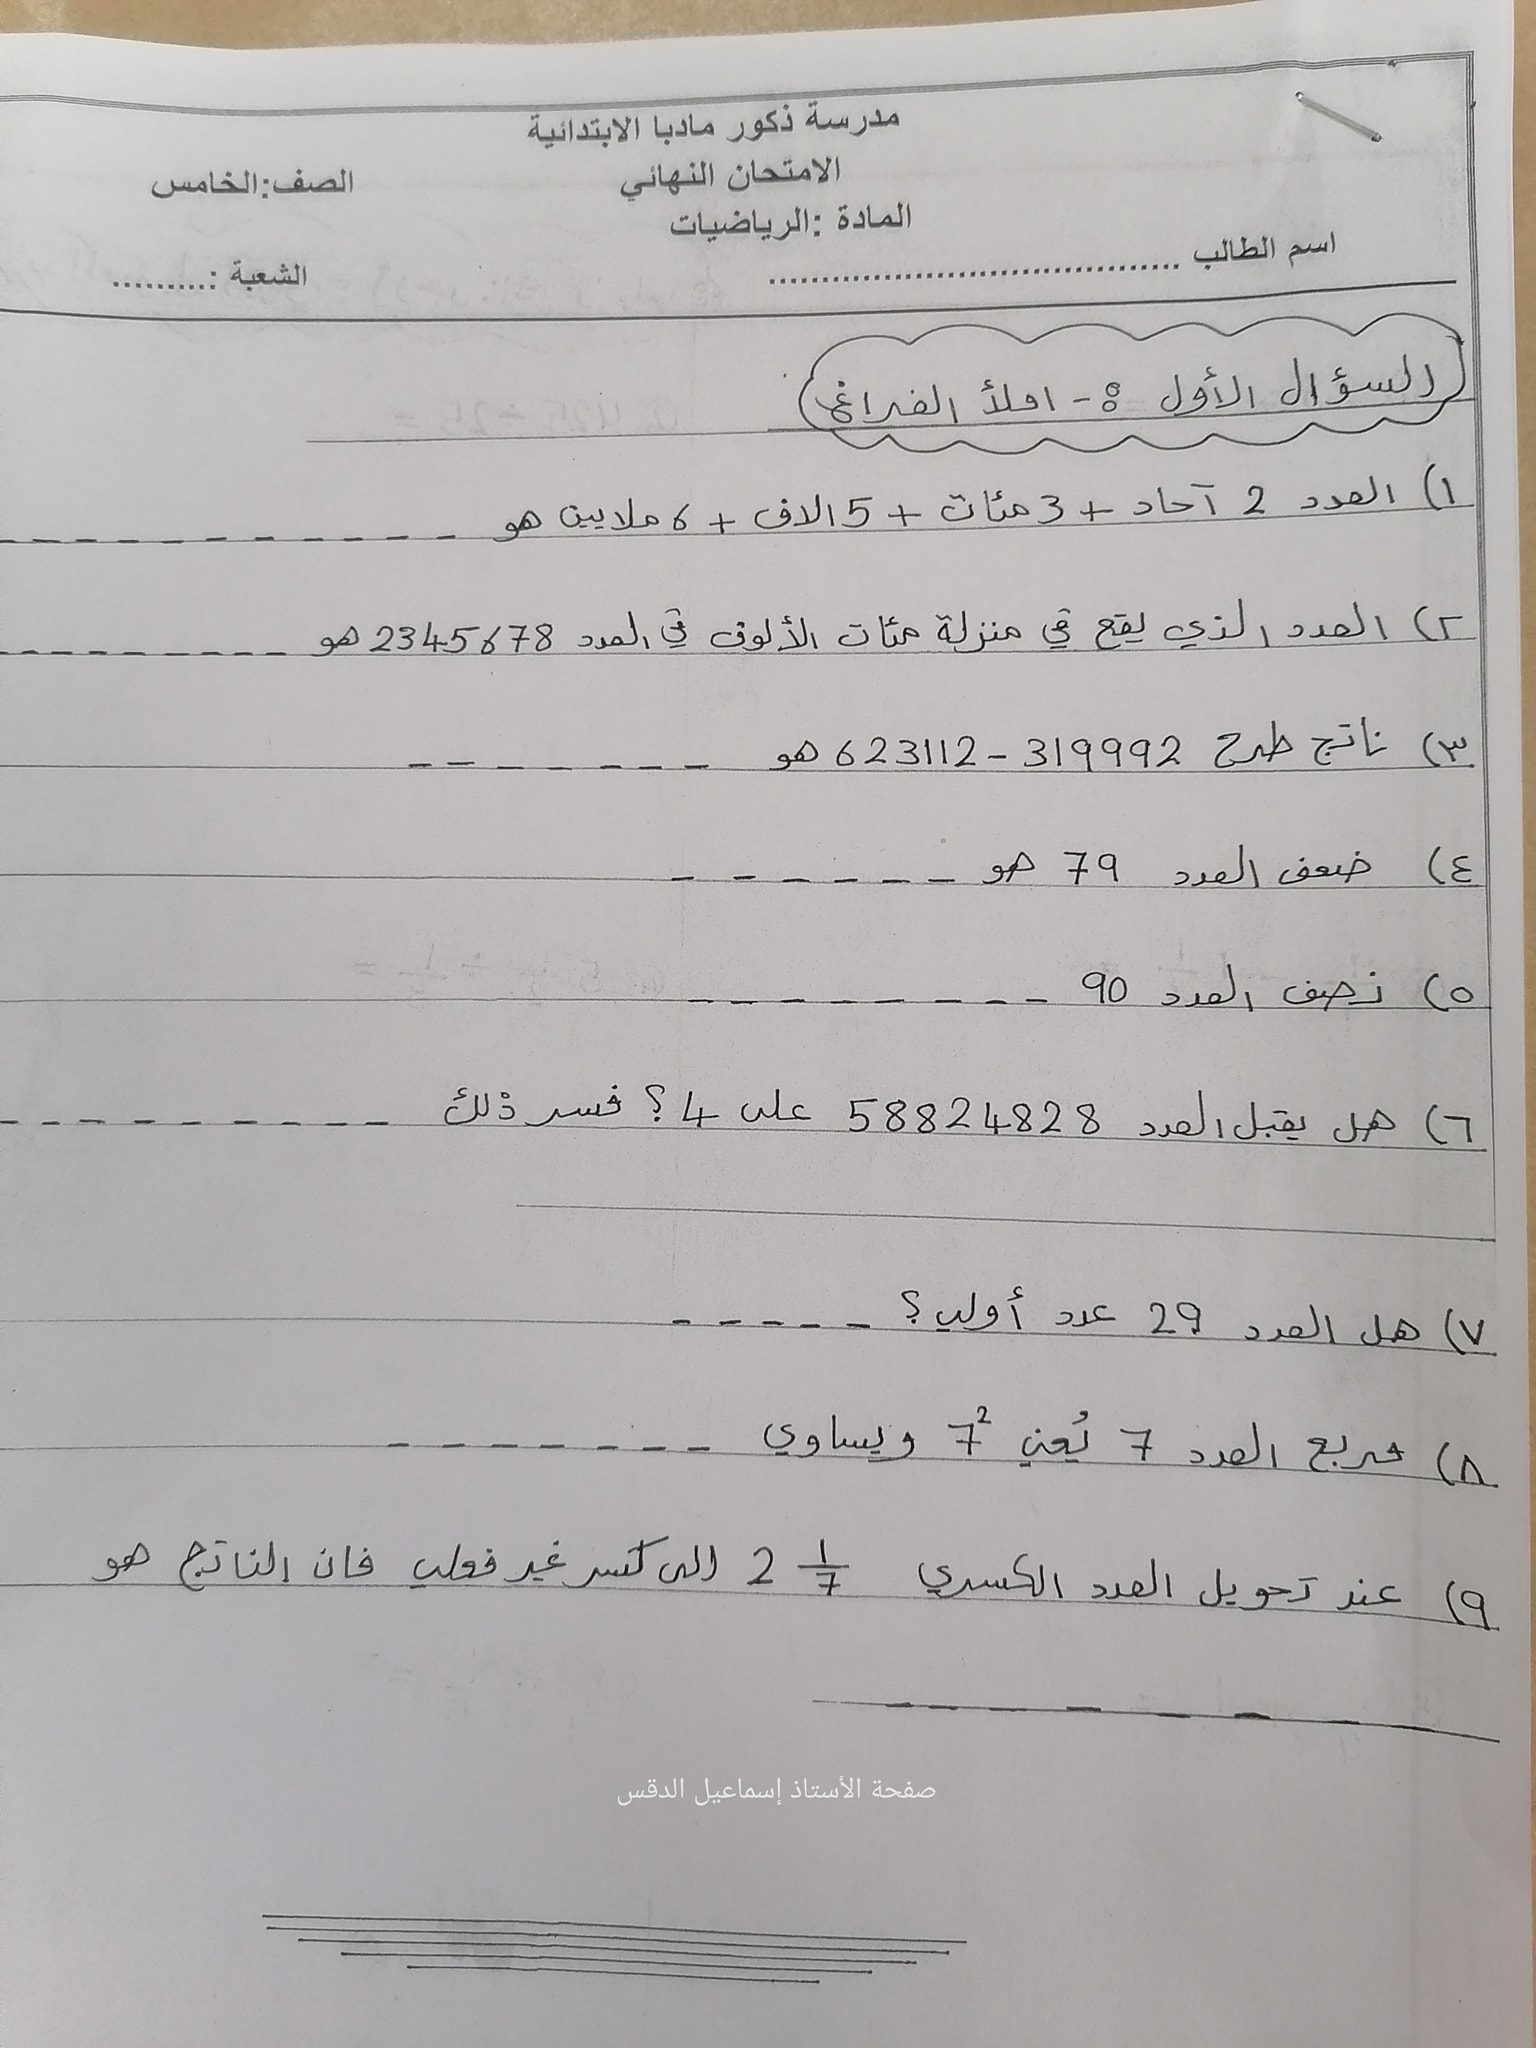 مدرسة ذكور مادبا الابتدائية
الامتحان النهائي
الصف:الخامس
المادة :الرياضيات
اسم الطالب ......................................
الشعبة :..........
السؤال الأول :- املأ الفراغ
١) العدد 2 آحاد + 3 مئات + 5 الاف + 6 ملايين هو - - - - - - - - - - -
٢) العدد الذي يقع في منزلة مئات الألوف في العدد 2345678 هو - - - - - - - - -
٣) ناتج طرح 623112 - 319992 هو - - - - - - -
٤) ضعف العدد 79 هو - - - - - -
٥) نصف العدد 90 - - - - - - - -
٦) هل يقبل العدد 58824828 على 4 ؟ فسر ذلك - - - - - - - - -
٧) هل العدد 29 عدد أولي ؟ - - - - -
٨) مربع العدد 7 يُعني 7² ويساوي - - - - - - -
٩) عند تحويل العدد الكسري 2 1/7 الى كسر غير فعلي فان الناتج هو
- - - - - - -
صفحة الأستاذ إسماعيل الدقس